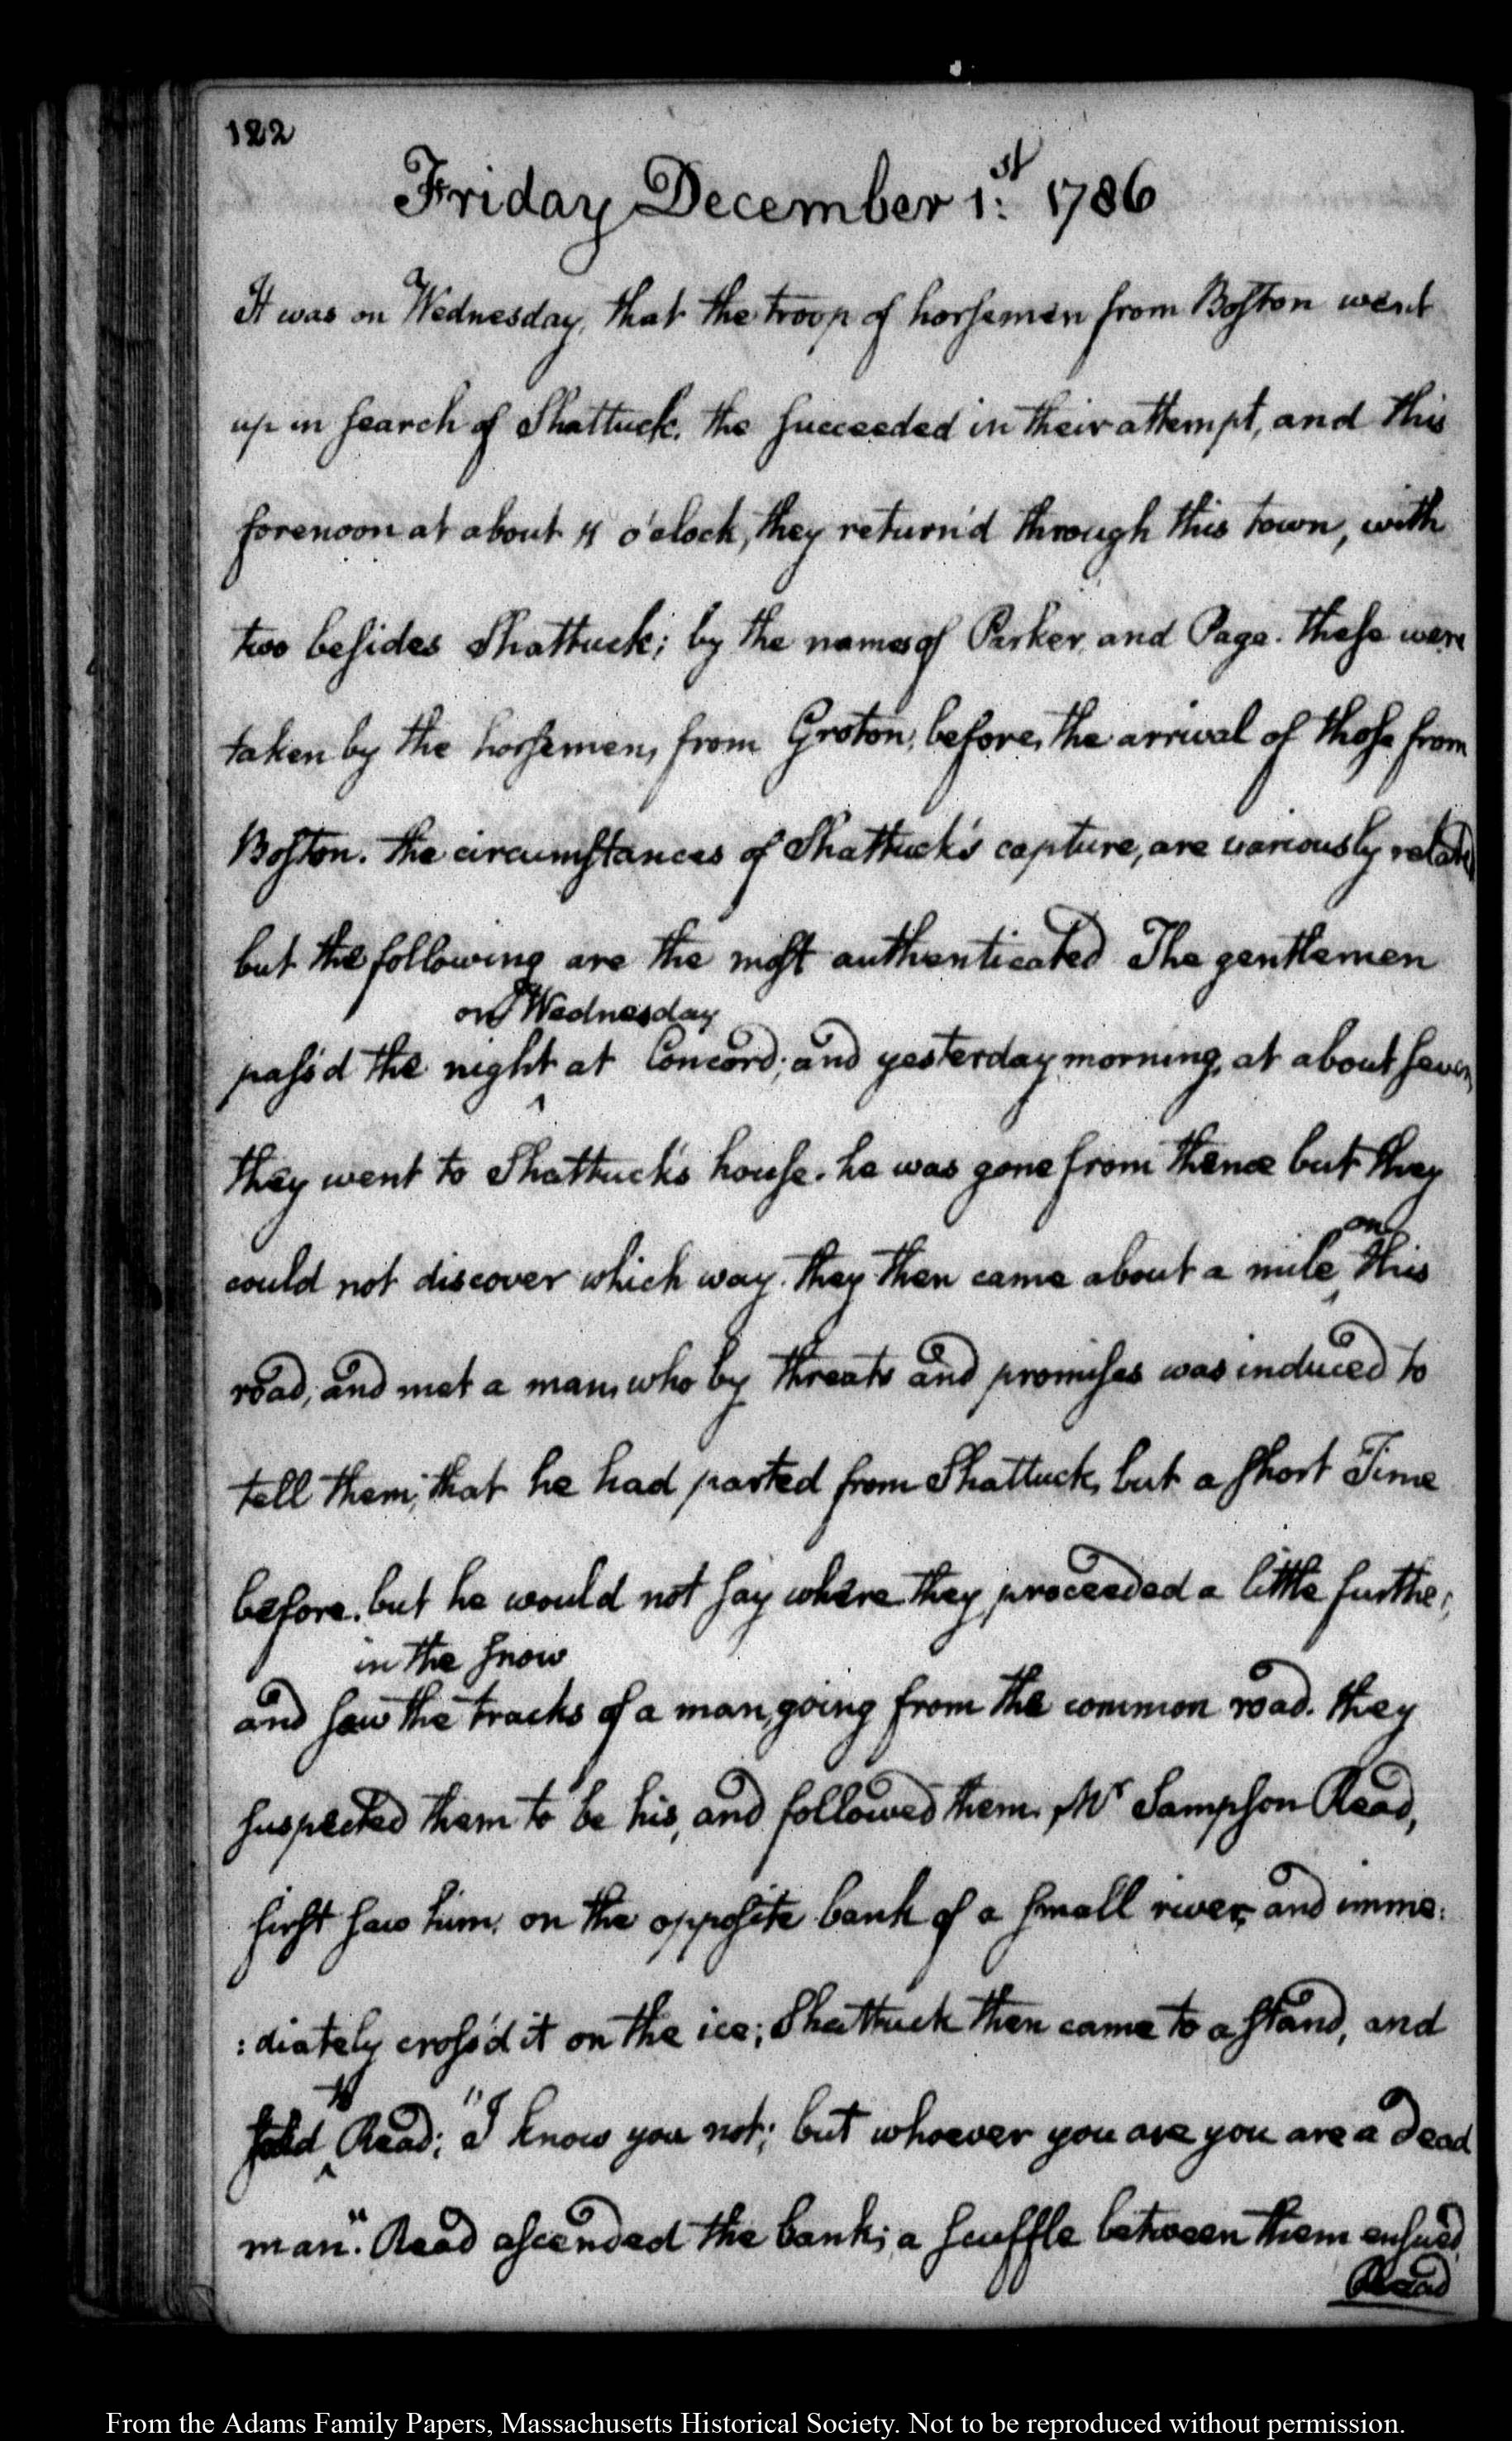 122
Friday December 1:st 1786
It was on Wednesday, that the troop of horsemen from Boston went
up in search of Shattuck. the succeeded in their attempt, and this
forenoon at about 11 o'clock, they return'd through this town, with
two besides Shattuck; by the names of Parker, and Page. these were
taken by the horsemen, from Groton, before, the arrival of those from
Boston. the circumstances of Shattuck's capture, are variously related
but the following are the most authenticated The gentlemen
on Wednesday
pass'd the night at Concord; and yesterday morning, at about seven
they went to Shattuck's house. he was gone from thence but they
on
could not discover which way. they then came about a mile this
road, and met a man, who by threats and promises was induced to
tell them, that he had parted from Shattuck, but a short Time
before. but he would not say where they proceeded a little further,
in the snow
and saw the tracks of a man, going from the common road. they
suspected them to be his, and followed them. Mr Sampson Read,
first saw him, on the opposite bank of a small river, and imme:
:diately cross'd it on the ice; Shattuck then came to a stand, and
to
said Read; "I know you not; but whoever you are you are a dead
man". Read ascended the bank; a scuffle between them ensued
Read
From the Adams Family Papers, Massachusetts Historical Society. Not to be reproduced without permission.